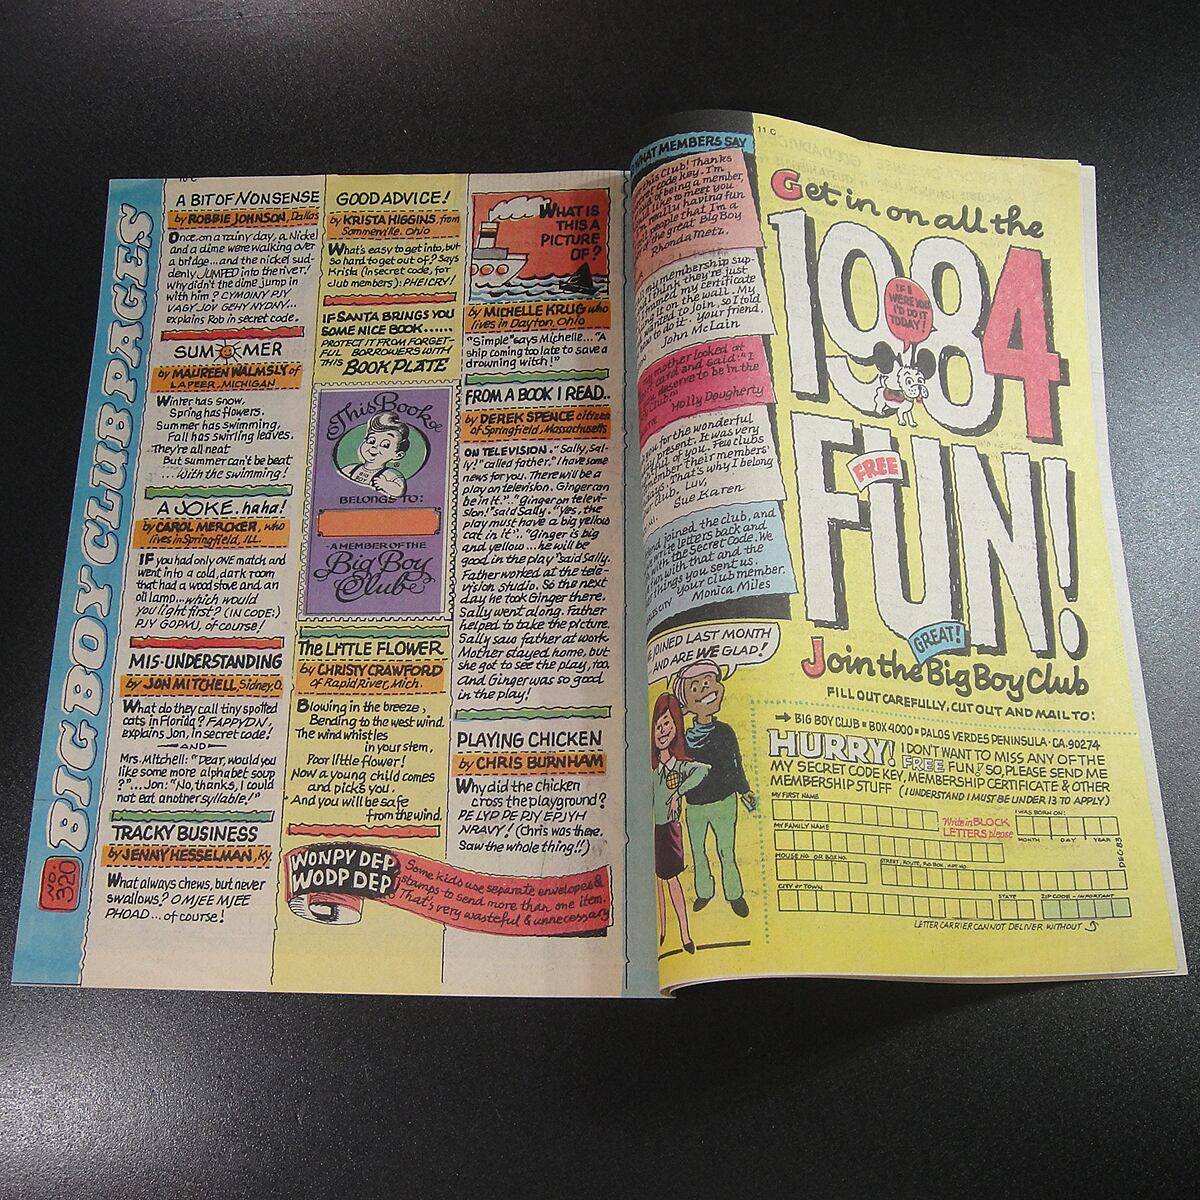 BIG BOY CLUB PAGES
NO. 320
10 C
A BIT OF NONSENSE
by ROBBIE JOHNSON, Dallas
Once on a rainy day, a Nickel
and a dime were walking over
a bridge...and the nickel sud-
denly JUMPED into the river!
Why didn't the dime jump in
with him? CYMONY PJY
VABY JOV GEHY NYDNY...
explains Rob in secret code.
SUMMER
by MAUREEN WALMSLY of
LAPEER, MICHIGAN
Winter has snow,
Spring has flowers.
Summer has swimming,
Fall has swirling leaves.
They're all neat
But summer can't be beat
...with the swimming!
A JOKE. haha!
by CAROL MERCKER, who
lives in Springfield, ILL.
IF you had only ONE match and
went into a cold, dark room
that had a wood stove and an
oil lamp...which would
you light first? (IN CODE:)
PJY GOPWU, of course!
MIS-UNDERSTANDING
by JON MITCHELL, Sidney, O.
What do they call tiny spotted
cats in Florida? FAPPYDN,
explains Jon, in secret code!
AND
Mrs. Mitchell: "Dear, would you
like some more alphabet soup
?"...Jon: "No, thanks, I could
not eat another syllable!"
TRACKY BUSINESS
by JENNY HESSELMAN, Ky.
What always chews, but never
swallows? OMJEE MJEE
PHOAD...of course!
GOOD ADVICE!
by KRISTA HIGGINS, from
Sommerville, Ohio
What's easy to get into, but
so hard to get out of? Says
Krista (in secret code, for
club members): PHEICRY!
IF SANTA BRINGS YOU
SOME NICE BOOK......
PROTECT IT FROM FORGET-
FUL BORROWERS WITH
THIS BOOK PLATE
This Book
BELONGS TO:
A MEMBER OF THE
Big Boy
Club
The LITTLE FLOWER
by CHRISTY CRAWFORD
of Rapid River, Mich.
Blowing in the breeze,
Bending to the west wind.
The wind whistles
in your stem,
Poor little flower!
Now a young child comes
and picks you.
And you will be safe
from the wind.
WONPY DEP
WODP DEP
Some kids use separate envelopes &
stamps to send more than one item.
That's very wasteful & unnecessary
WHAT IS
THIS A
PICTURE
OF?
by MICHELLE KRUG who
lives in Dayton, Ohio
"Simple" says Michelle..."A
ship coming too late to save a
drowning witch!"
FROM A BOOK I READ..
by DEREK SPENCE citizen
of Springfield, Massachusetts
ON TELEVISION. "Sally, Sal-
ly!" called father, "I have some
news for you. There will be a
play on television. Ginger can
be in it." "Ginger on televi-
sion!" said Sally. "Yes, the
play must have a big yellow
cat in it". "Ginger is big
and yellow...he will be
good in the play" said Sally.
Father worked at the tele-
vision studio. So the next
day he took Ginger there.
Sally went along. Father
helped to take the picture.
Sally saw father at work.
Mother stayed home, but
she got to see the play, too.
And Ginger was so good
in the play!
PLAYING CHICKEN
by CHRIS BURNHAM
Why did the chicken
cross the playground?
PE LYP PE PJY EPJYH
NRAVY! (Chris was there.
Saw the whole thing!!)
WHAT MEMBERS SAY
this Club! Thanks
code key. I'm
of being a member,
like to meet you
really having fun
people that I'm a
of the great Big Boy
Rhonda Metz.
my membership sup-
think they're just
my certificate
on the wall. My
wanted to join, so I told
how to do it. Your friend,
John McLain
My mother looked at
card and said: "I
deserve to be in the
Club."
Holly Dougherty
for the wonderful
present. It was very
of you. Few clubs
remember their members'
That's why I belong
Club. Luv,
Sue Karen
joined the club, and
letters back and
with the Secret Code. We
fun with that and the
things you sent us.
Your club member,
Monica Miles
JOINED LAST MONTH
AND ARE WE GLAD!
11 C
Get in on all the
1984
IF I
WERE YOU
I'D DO IT
TODAY!
FREE
FUN!
GREAT!
Join the Big Boy Club
FILL OUT CAREFULLY, CUT OUT AND MAIL TO:
BIG BOY CLUB BOX 4000 PALOS VERDES PENINSULA CA. 90274
HURRY! I DON'T WANT TO MISS ANY OF THE
FREE FUN! SO, PLEASE SEND ME
MY SECRET CODE KEY, MEMBERSHIP CERTIFICATE & OTHER
MEMBERSHIP STUFF (I UNDERSTAND I MUST BE UNDER 13 TO APPLY)
MY FIRST NAME
Write in BLOCK
LETTERS please
I WAS BORN ON:
MONTH DAY YEAR
MY FAMILY NAME
HOUSE NO. OR BOX NO.
STREET, ROUTE, P.O. BOX, APT. NO.
CITY OR TOWN
STATE
ZIP CODE - IMPORTANT
LETTER CARRIER CANNOT DELIVER WITHOUT
DEC-83